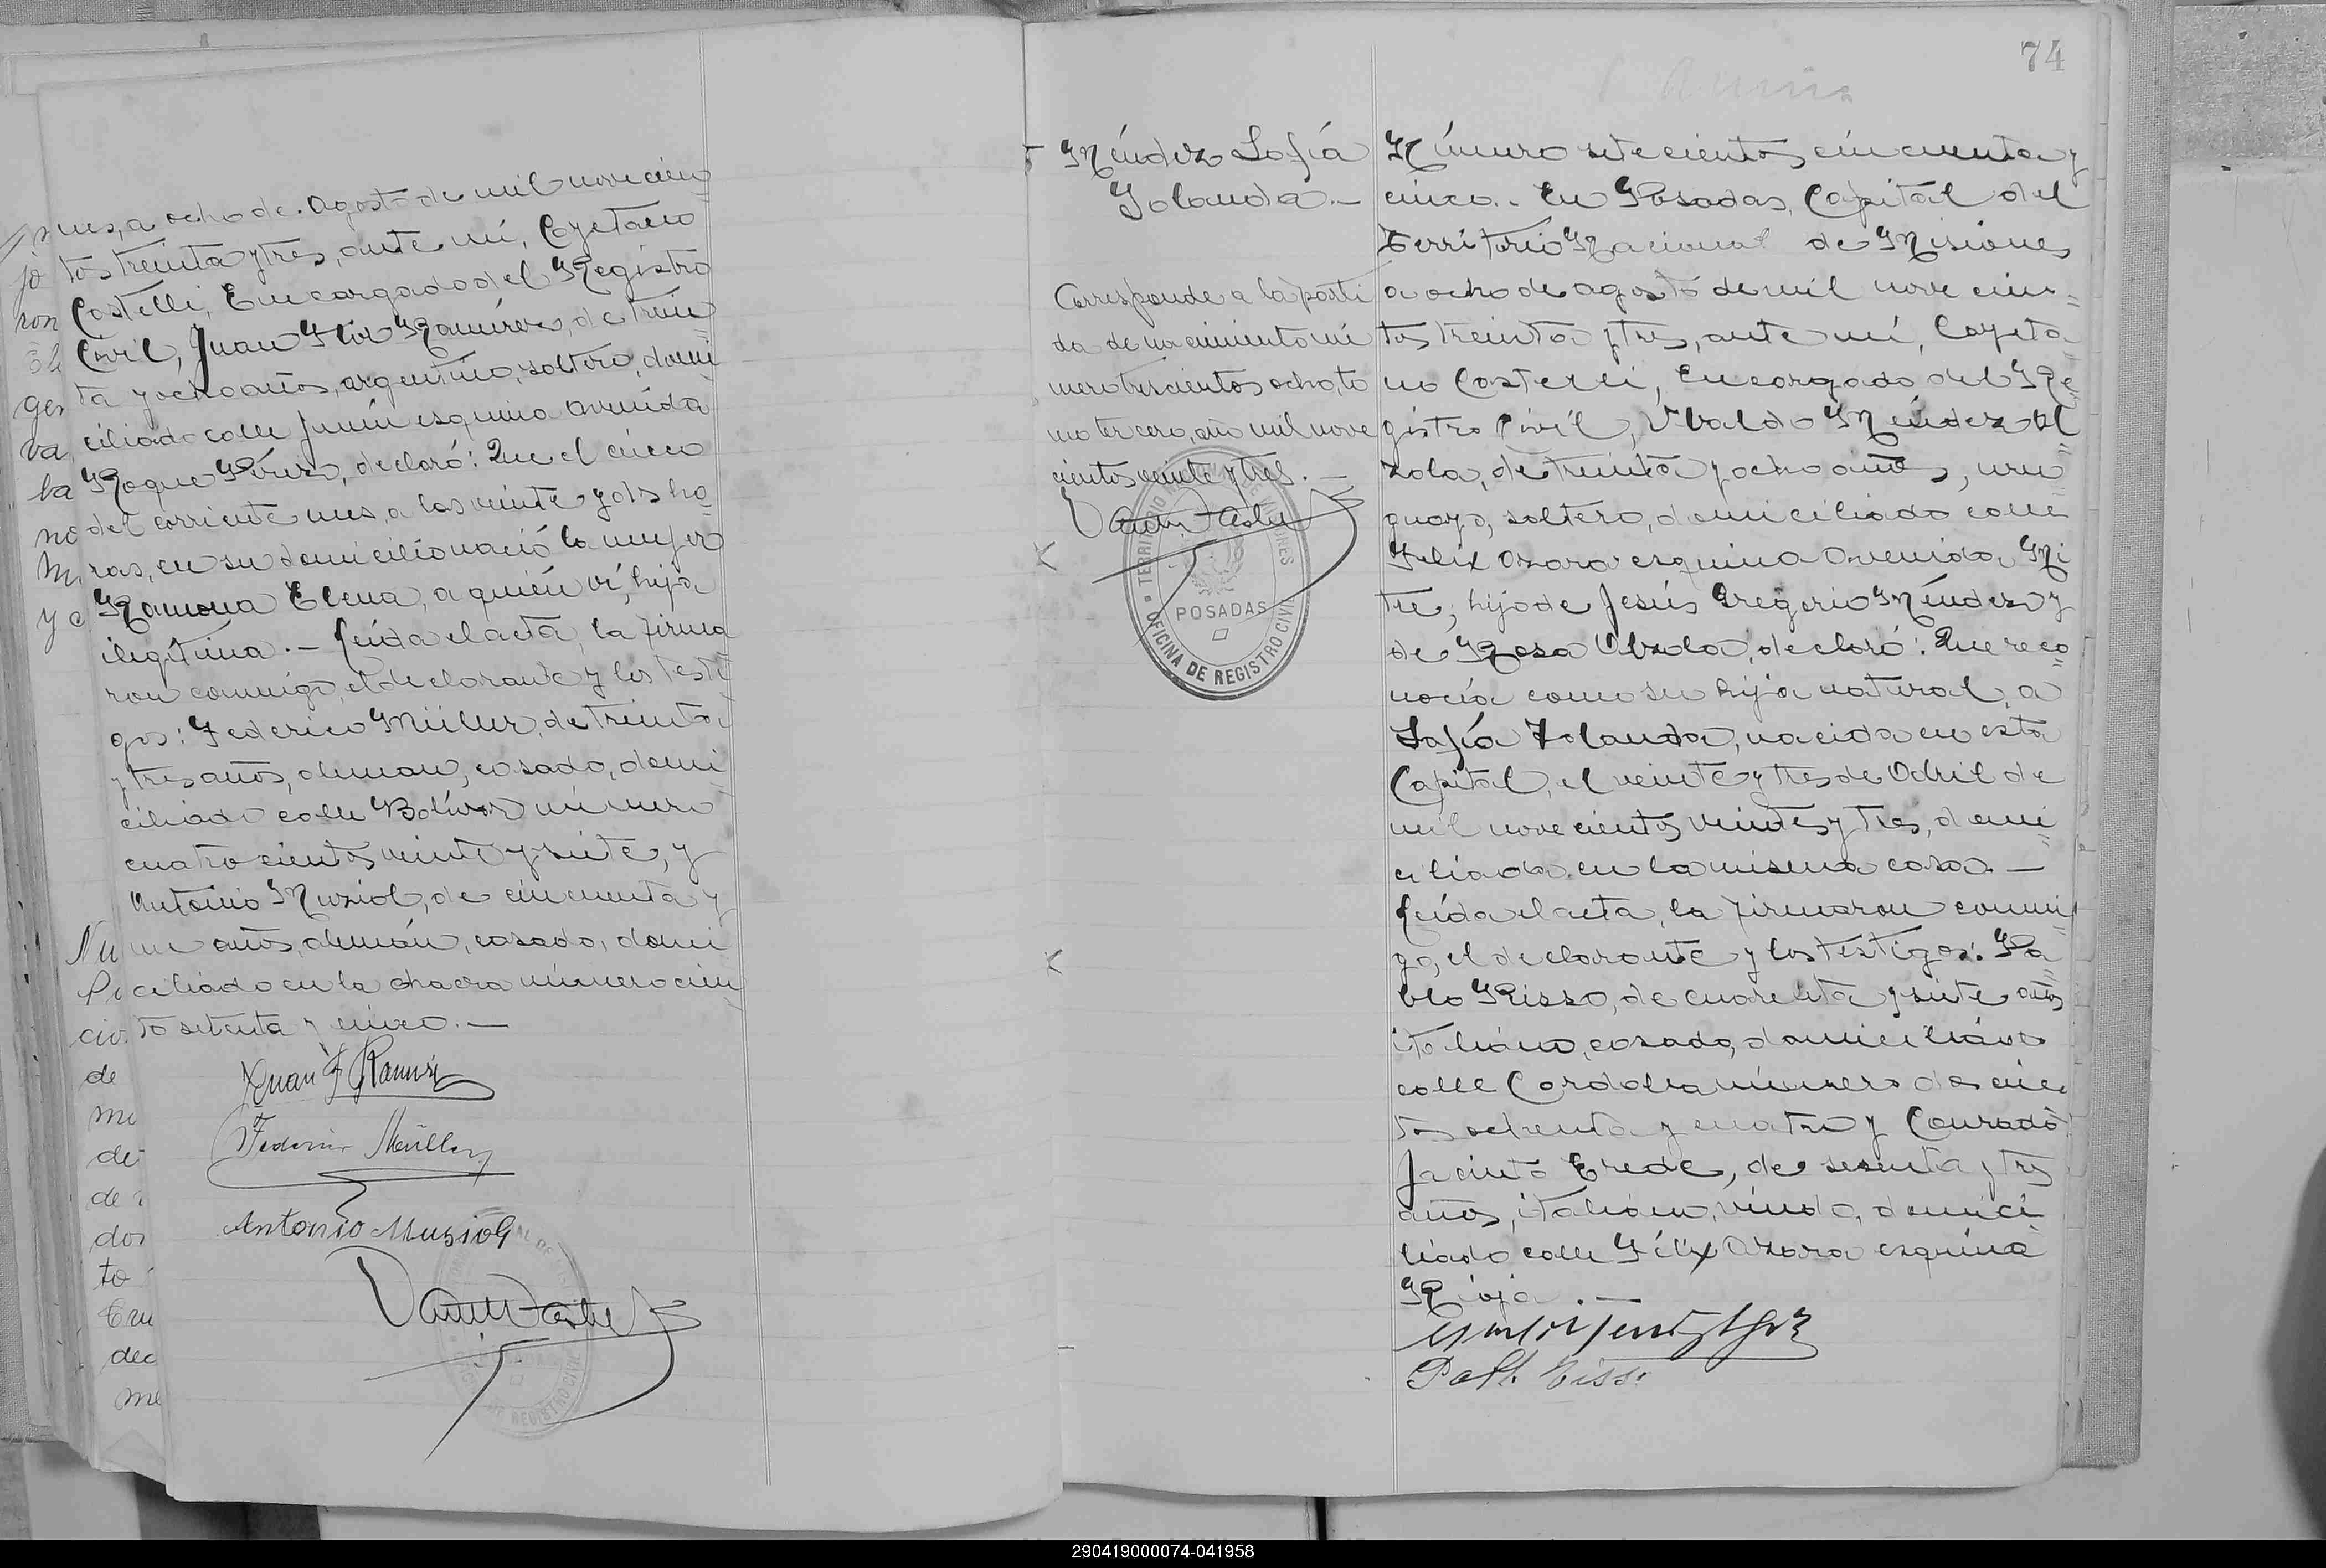 nes, a ocho de Agosto de mil novecien
tos treinta y tres, ante mí, Cayetano
Castelli, Encargado del Registro
Civil, Juan Flor Ramírez, de trein
ta y ocho años, argentino, soltero, domi
ciliado calle Junín esquina Avenida
Roque Pérez, declaró: Que el cinco
del corriente mes, a las veinte y dos ho
ras, en su domicilio nació la mujer
Ramona Elena, a quién ví, hija
ilegítima.— Leída el acta, la firma
ron conmigo, el declarante y los testi
gos: Federico Müller, de treinta
y tres años, alemán, casado, domi
ciliado calle Bolívar número
cuatrocientos veinte y siete, y
Antonio Muziol, de cincuenta y
un años, alemán, casado, domi
ciliado en la chacra número cien
to setenta y cinco.—
Juan F Ramírez
Federico Müller
Antonio Musiol
74
Méndez Sofía
Yolanda.—
Corresponde a la parti
da de nacimiento nú
mero trescientos ocho, to
mo tercero, año mil nove
cientos veinte y tres.—
POSADAS
OFICINA DE REGISTRO CIVIL
Número setecientos cincuenta y
cinco.- En Posadas, Capital del
Territorio Nacional de Misiones
a ocho de agosto de mil nove cien
tos treinta y tres, ante mí, Cayeta
no Castelli, Encargado del Re
gistro Civil, Ubaldo Méndez Al
zola, de treinta y ocho años, uru
guayo, soltero, domiciliado calle
Felix Azara esquina Avenida Mi
tre, hijo de Jesús Gregorio Méndez y
de Rosa Alzola, declaró: Que reco
nocía como su hija natural, a
Sofía Yolanda, nacida en esta
Capital, el veinte y tres de Abril de
mil novecientos veinte y tres, domi
ciliada en la misma casa.—
Leída el acta, la firmaron conmi
go, el declarante y los testigos: Pa
blo Risso, de cuarenta y siete años
italiano, casado, domiciliado
calle Cordoba número doscien
tos ochenta y cuatro y Conrado
Jacinto Erede, de sesenta y tres
años, italiano, viudo, domici
liado calle Félix Azara esquina
Rioja.—
290419000074-041958